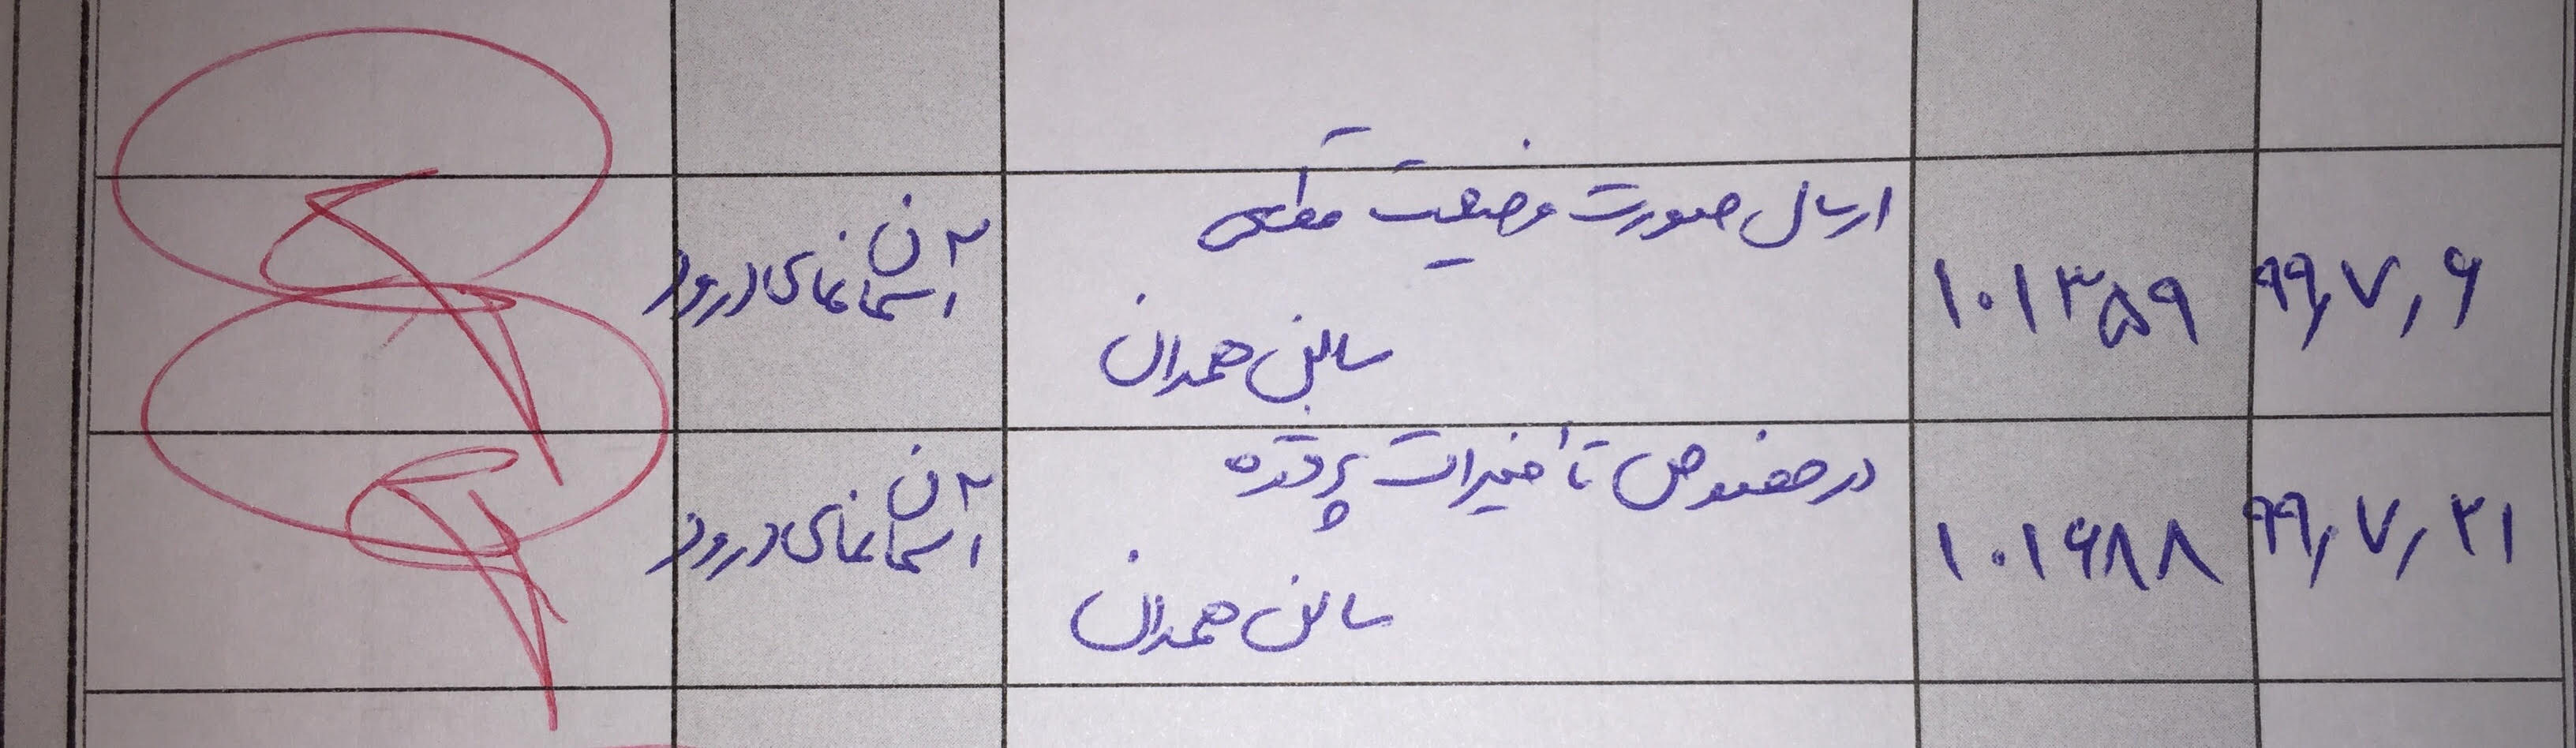 ۹۹,۷,۶
۱۰۱۳۵۹
ارسال صورت وضعیت قطعی
سالن همدان
آسمان نمای درود
۹۹,۷,۲۱
۱۰۱۶۸۸
در خصوص تأخیرات پروژه
سالن همدان
آسمان نمای درود